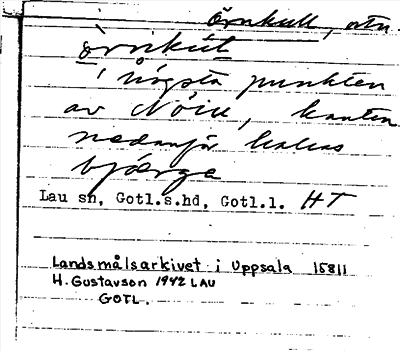 Örnkull, otn.
i högsta punkten
av kanten
nedanför
bjærge
Lau sn, Gotl.s.hd, Gotl.l. HT
Landsmålsarkivet i Uppsala 15811
H. Gustavson 1942 LAU
GOTL.